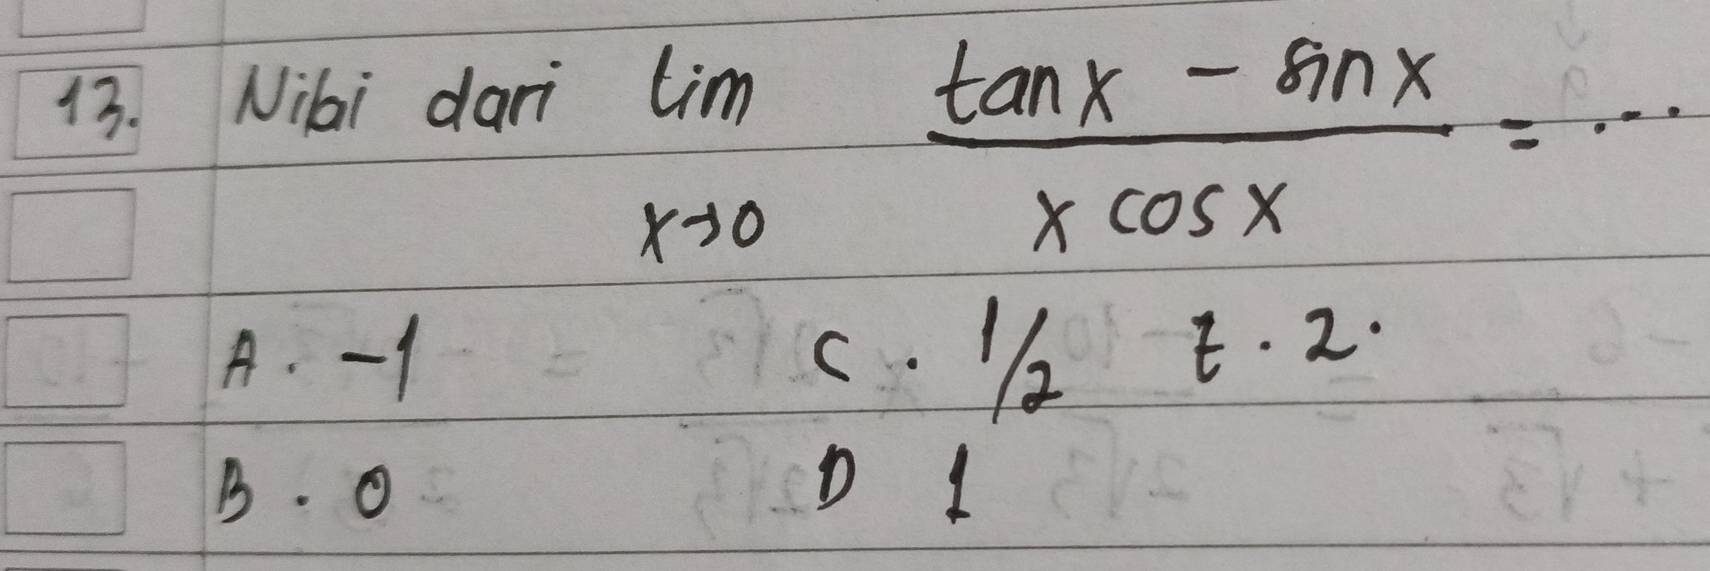 13. Nilai dari lim tan x - sin x = ...
x→0 x cos x
A. -1 C. 1/2 E. 2.
B. 0 D 1